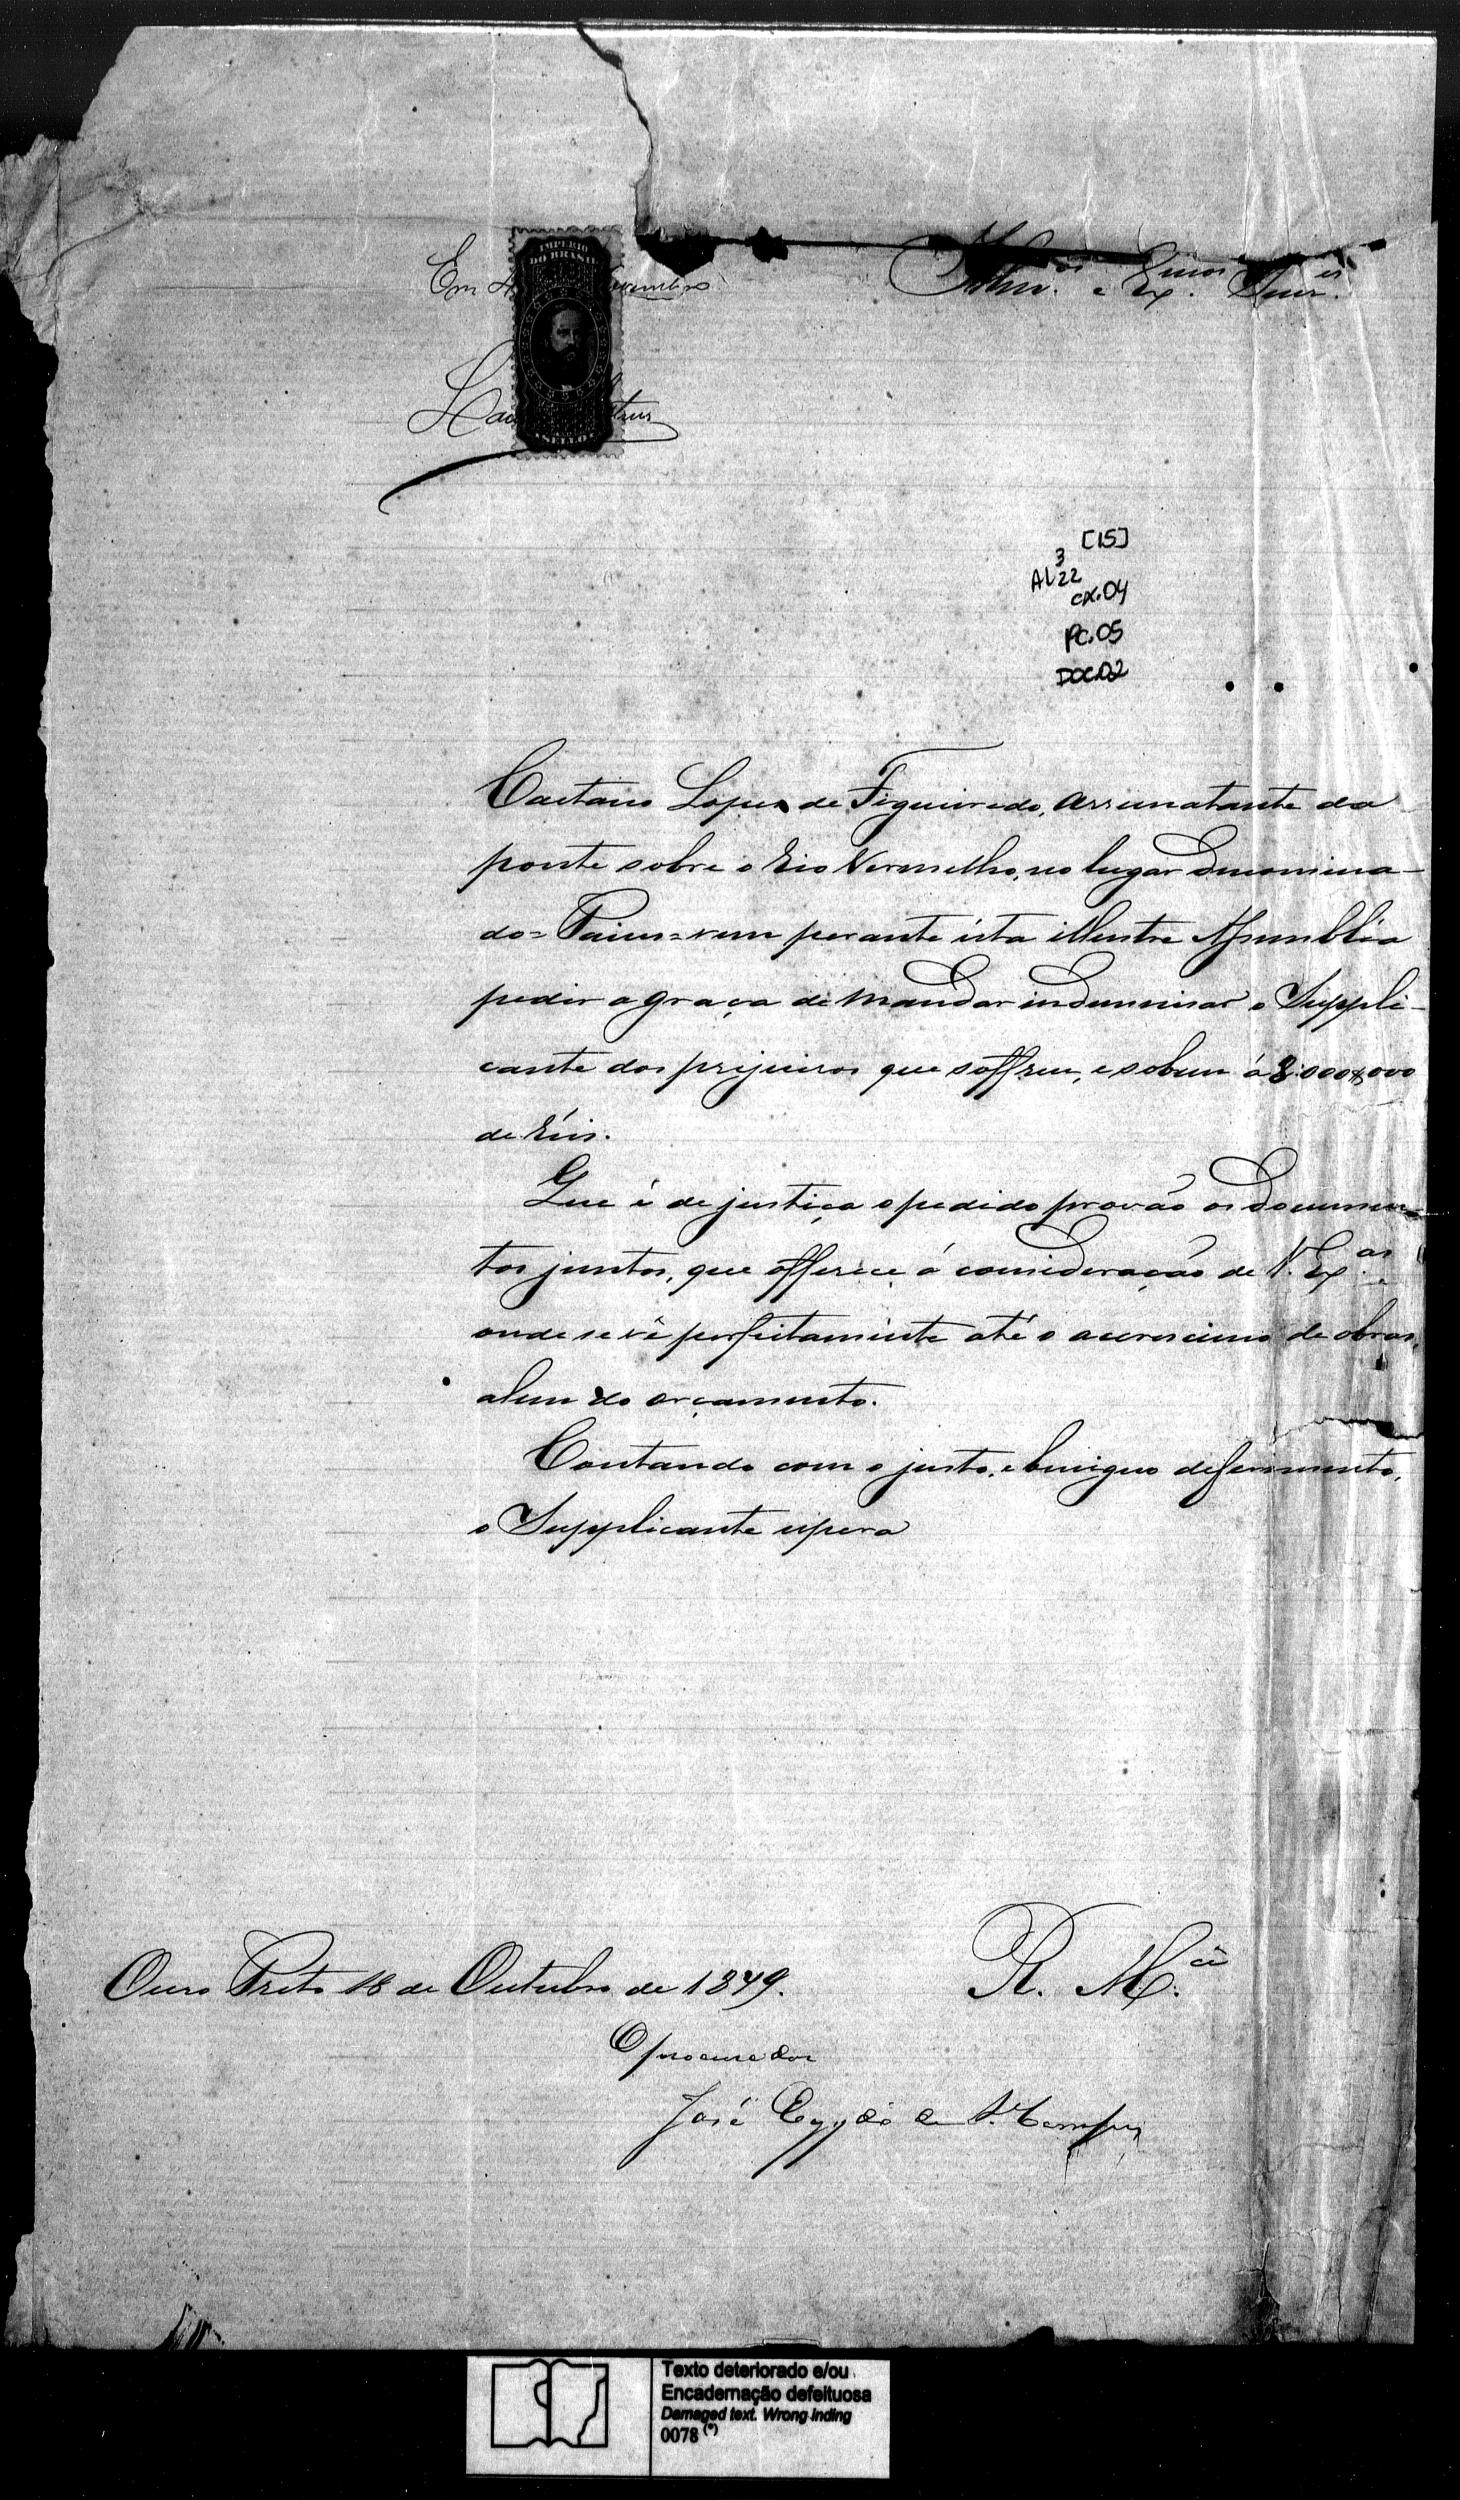 Em 4 Novembro
IMPERIO
DO BRASIL
SELLO
Illmos. e Exmos. Snres.
[15]
AL 3
22
cx.04
PC.05
DOC.02
Caetano Lopes de Figueiredo, arrematante da
ponte sobre o Rio Vermelho, no lugar denomina-
do = Paiva = vem perante ésta illustre Assembléa
pedir a graça de mandar indemnisar o Suppli-
cante dos prejuisos que soffreu, e sobem á 8:000$000
de réis.
Que é de justiça o pedido provão os documen-
tos juntos, que offerece á consideração de V. Ex.as
onde se vê perfeitamente até o acerescimo de obras,
alem do orçamento.
Contando com o justo, e benigno deferimento,
o Supplicante espera
R. M.ce
Ouro Preto 18 de Outubro de 1879.
O procurador
José Egydio da S.a Campos
Texto deteriorado e/ou
Encadernação defeituosa
Damaged text. Wrong inding
0078 (*)